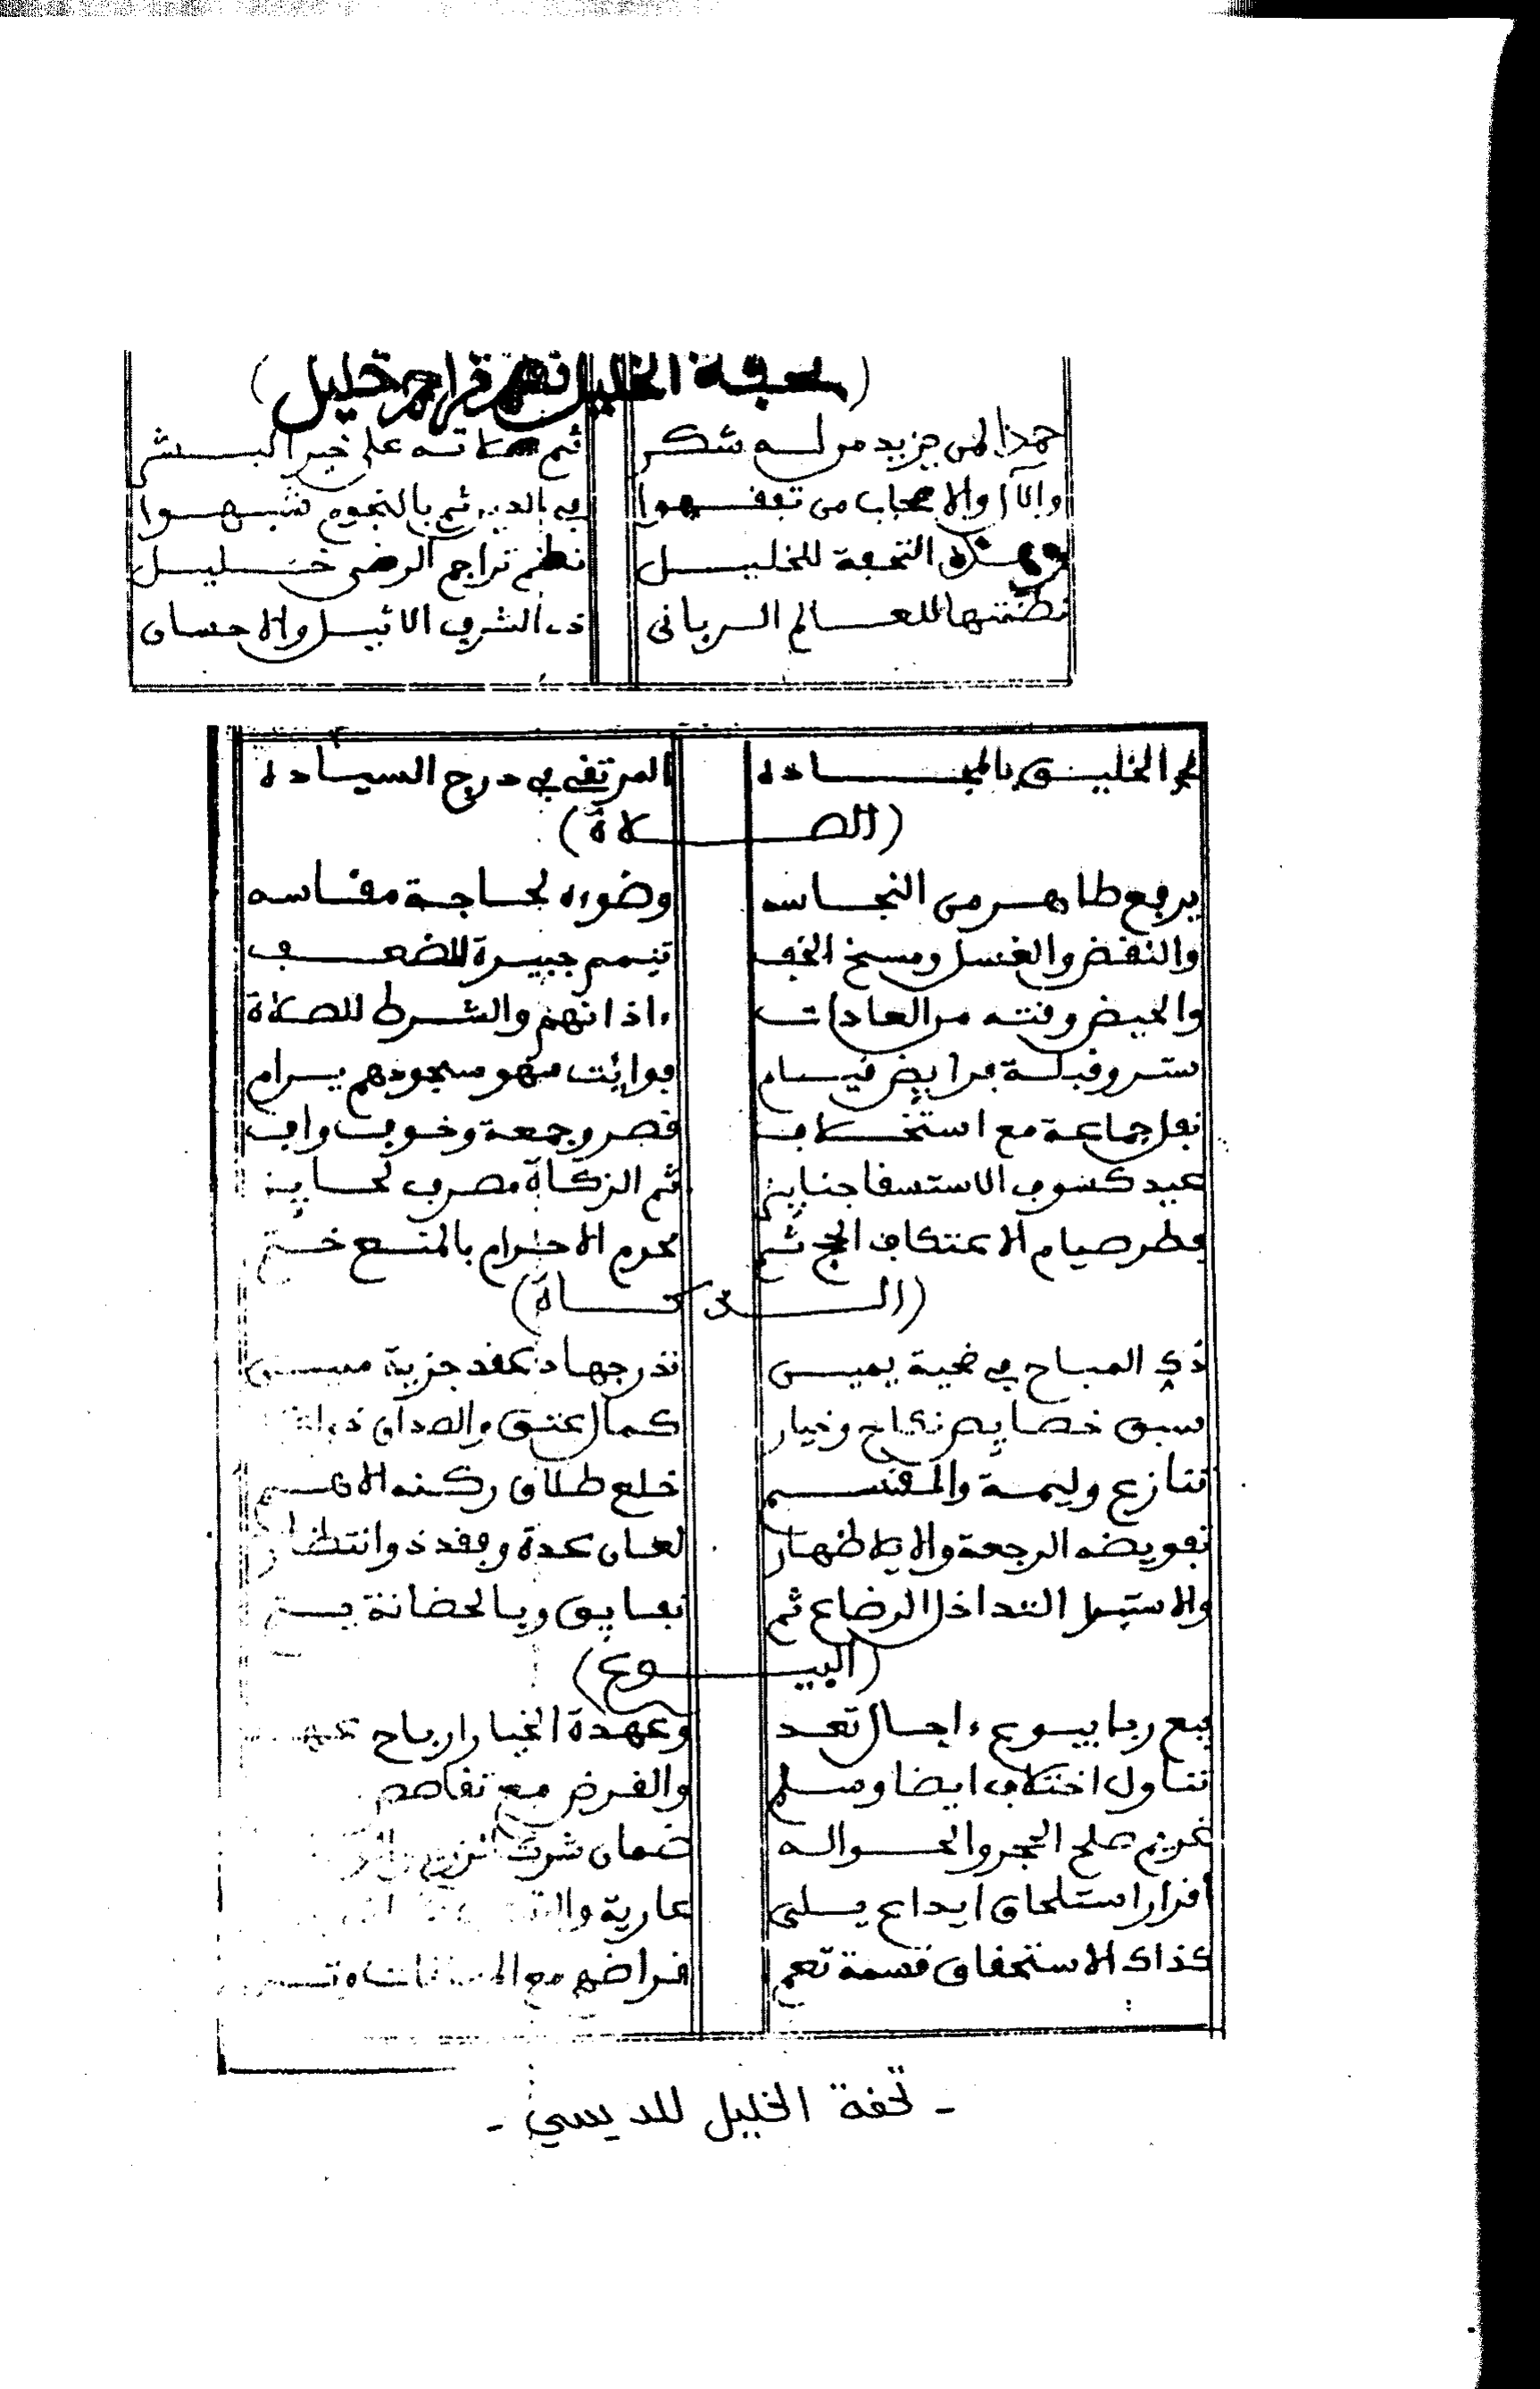 (تحفة الخليل نظم تراجم خليل)
حمدا لمن يزيد من له شكر ثم صلاته على خير البشر
والآل والاصحاب من تفقهوا في الدين ثم بالنجوم شبهوا
وهذه التحفة للخليل نظم تراجم الرضى خليل
نظمتها للعالم الرباني ذي الشرف الاثيل والاحسان
الخليق بالمجادة المرتقي في درج السيادة
(الصلاة)
يرفع طاهر من النجاسه وضوءه لحاجة مقاسه
والنقض والغسل ومسح الخف تيمم جبيرة للضعف
والحيض وقته من العادات ءاذانهم والشرط للصلاة
ستر وقبلة فرايض قيام فوائت سهو سجودهم يرام
نفل جماعة مع استخلاف قصر وجمعة وخوف واف
عيد كسوف الاستسقا جنايز ثم الزكاة مصرف لحايز
فطر صيام الاعتكاف الحج ثم محرم الاحرام بالمنع ختم
(الذكاة)
ذكي المباح في ضحية يمين نذر جهاد عقد جزية
سبق خصايص نكاح وخيار كمال عتق والصداق
تنازع وليمة والقسم خلع طلاق ركنه الاعم
تفويضه الرجعة والايلا ظهار لعان عدة وفقد ذو انتظار
والاستبرا التداخل الرضاع ثم نفايق وبالحضانة يتم
(البيوع)
بيع ربا بيوع ءاجال تعد وعهدة الخيار ارباح
تناول اختلاف ايضا وسلم والقرض مع تقاصص
غريم صلح الحجر والحواله ضمان شركة
اقرار استلحاق ايداع يلي عارية
كذاك الاستحقاق قسمة تعم قراضهم مع
- تحفة الخليل للديسي -